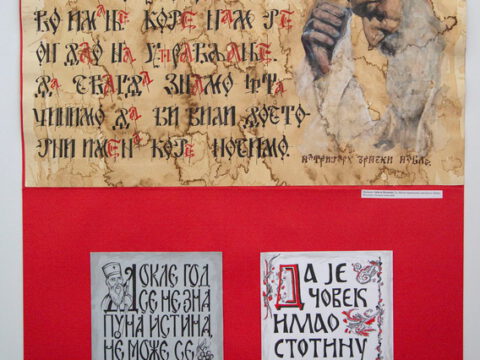 ВО ИМАЊЕ КОЈЕ НАМ ЈЕ
ОН ДАО НА УПРАВЉАЊЕ.
ДА СВАГДА ЗНАМО ШТА
ЧИНИМО ДА БИ БИЛИ ДОСТО-
ЈНИ ИМЕНА КОЈЕ НОСИМО.
ПАТРИЈАРХ СРПСКИ ПАВЛЕ
ДОКЛЕ ГОД
СЕ НЕ ЗНА
ПУНА ИСТИНА,
НЕ МОЖЕ СЕ
ДА ЈЕ
ЧОВЕК
ИМАО
СТОТИНУ